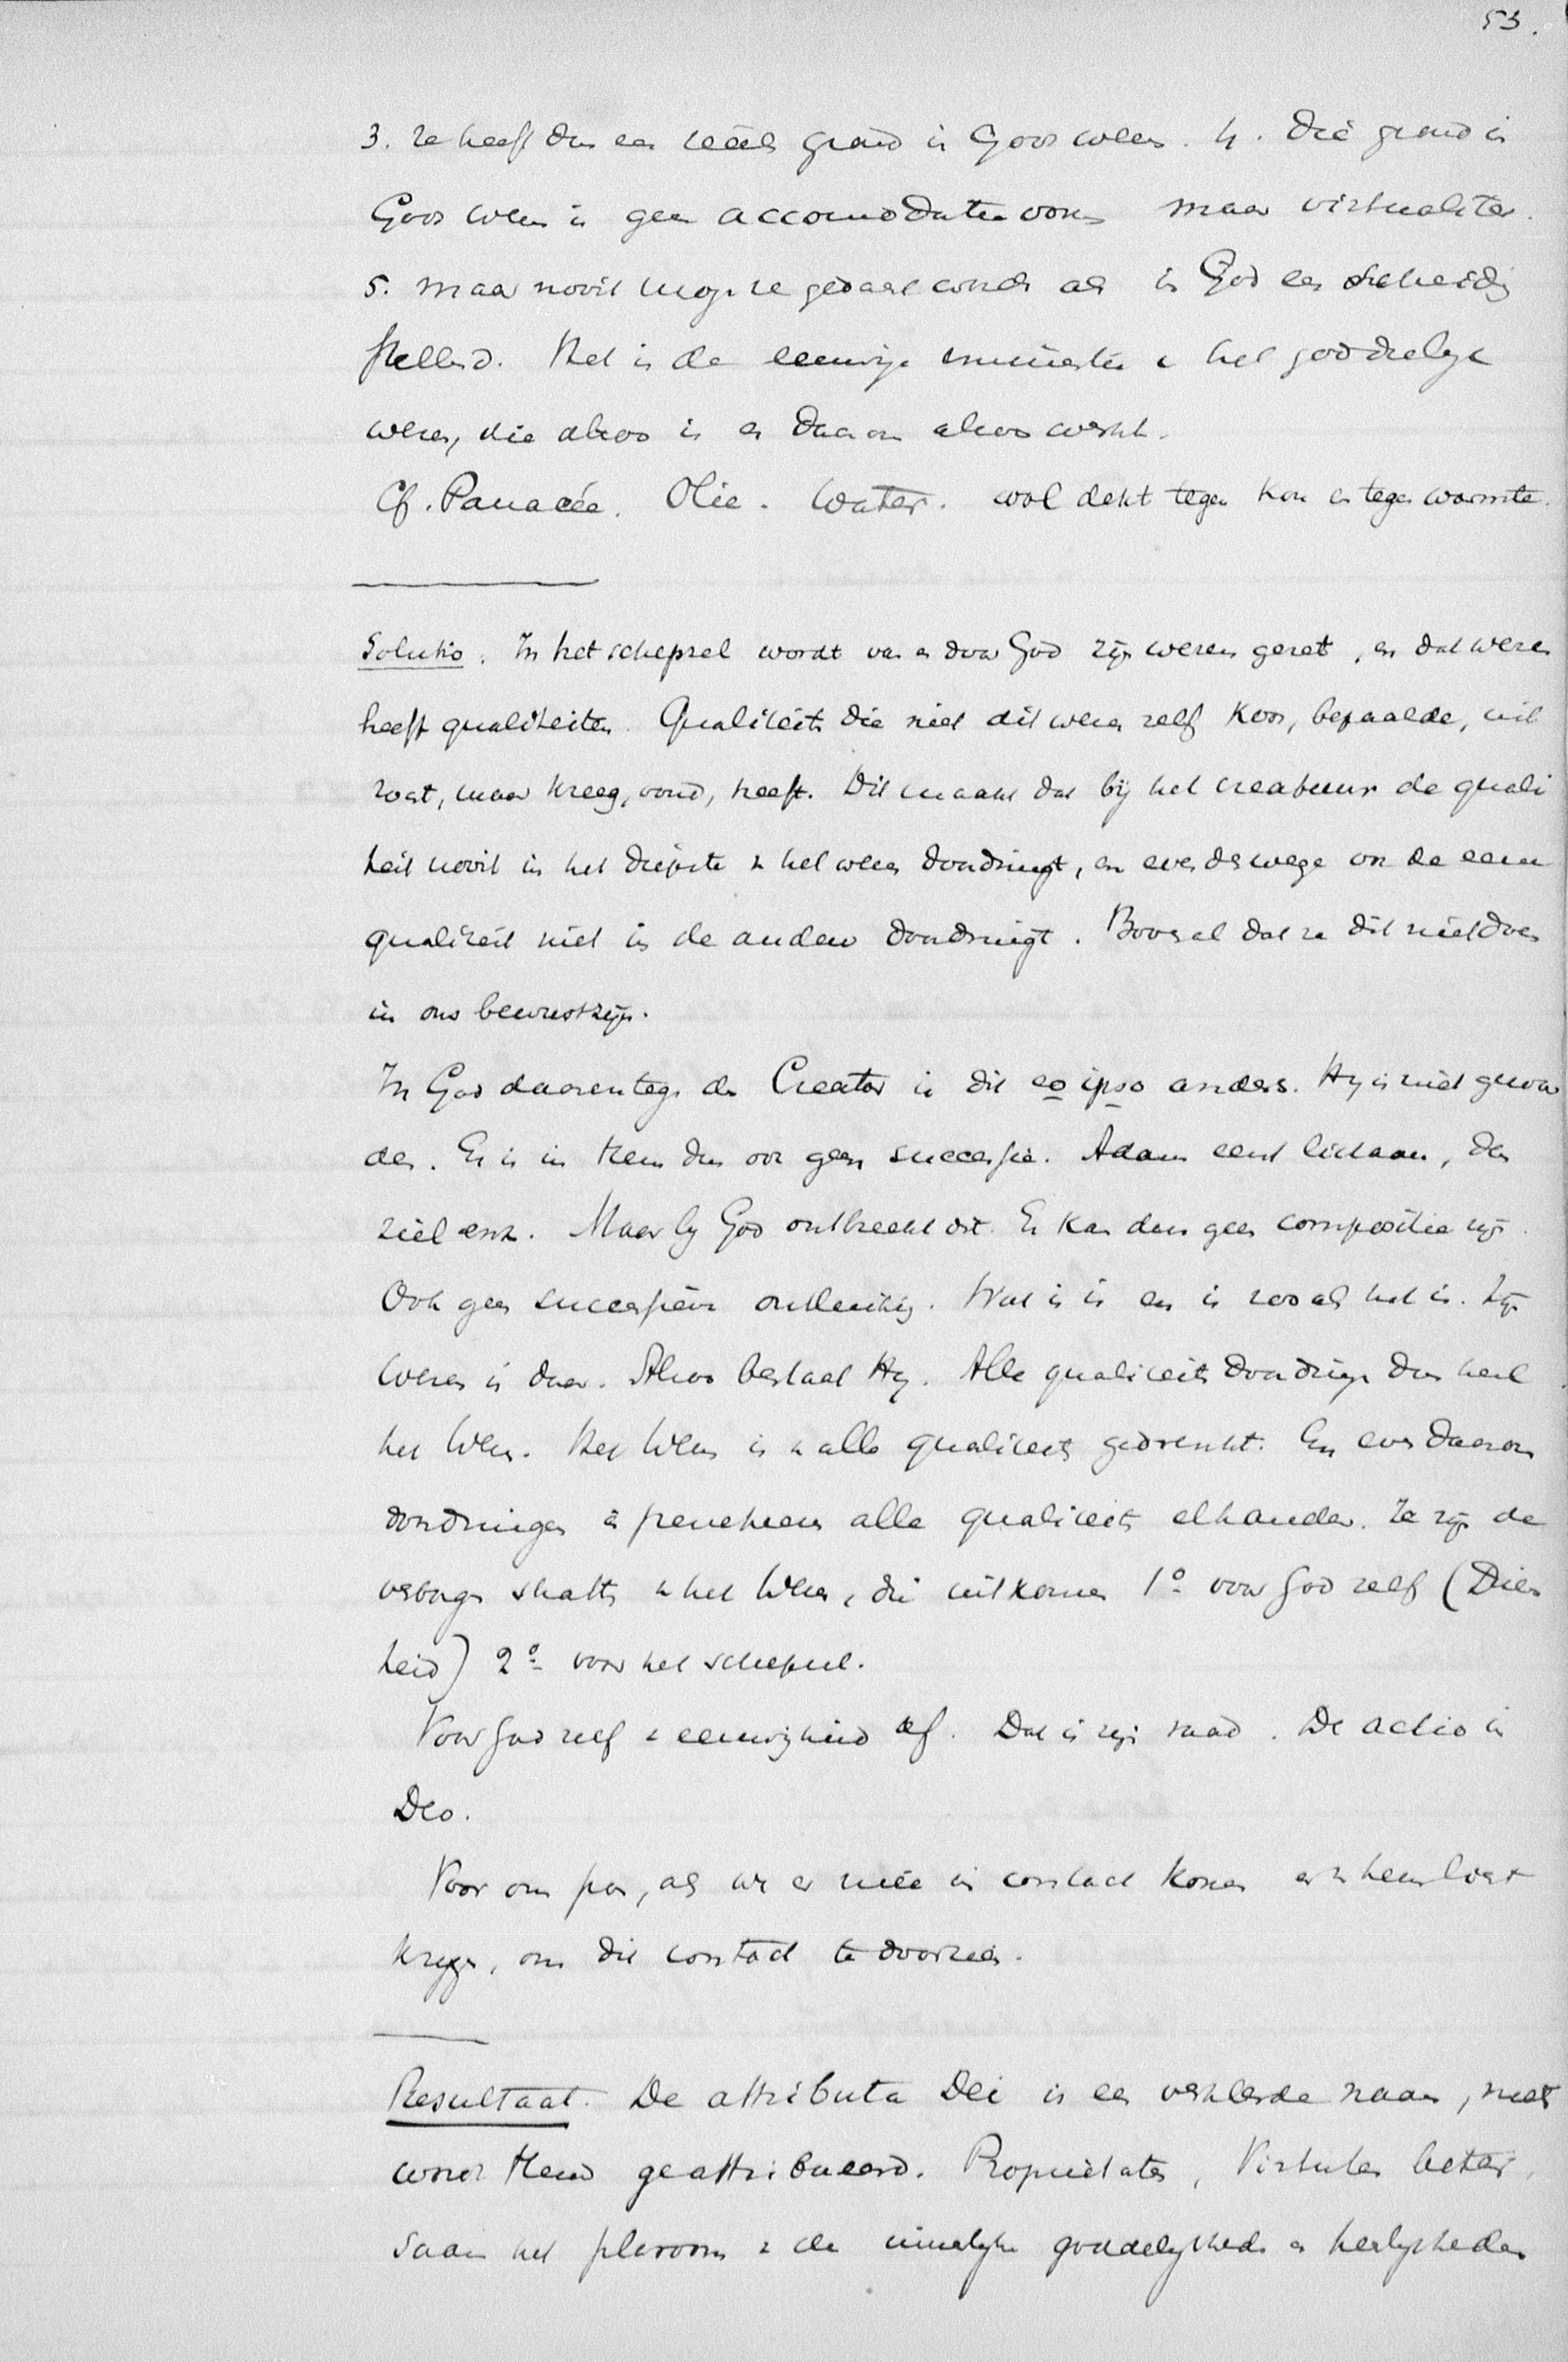 53.
3. ze heeft dus een reëele grond in Gods wezen. 4. Die grond in
Gods wezen is geen accomodatievorm maar virtualiter.
5. maar nooit mogen ze gedacht worden als in God een scheiding
stellend. Het is de eeuwige v het goddelijk
wezen, die alzoo is en daarom alzoo werkt.
Cf. Panacée. Olie. Water. wol dekt tegen kou en tegen warmte.
Solutio. In het schepsel wordt van en door God zijn wezen gezet, en dat wezen
heeft qualiteiten. Qualiteiten die niet dit wezen zelf koos, bepaalde, uit
zocht, maar kreeg, vond, heeft. Dit maakt dat bij het creatuur de quali
teit nooit in het diepste v het wezen doordringt, en evendeswege ook de eene
qualiteit niet in de andere doordringt. Bovenal dat ze dit niet doen
in ons bewustzijn.
In God daarentegen den Creator is dit eo ipso anders. Hij is niet gewor
den. Er is in Hem dus ook geen successie. Adam eerst lichaam, dan
ziel enz. Maar bij God ontbreekt dit. Er kan dus geen compositie zijn.
Ook geen successieve ontleening. Wat is is en is zooals het is. Zijn
Wezen is daar. Alzoo bestaat Hij. Alle qualiteiten doordringen dus heel
het Wezen. Het Wezen is v alle qualiteiten gedrenkt. En even daarom
doordringen en penetreeren alle qualiteiten elkander. Ze zijn de
verborgen schatten v het Wezen, die uitkomen 1º voor God zelf (Drieen
heid) 2º voor het schepsel.
Voor God zelf v eeuwigheid af. Dat is zijn raad. De actio in
Deo.
Voor ons pas, als we er mee in contact komen en v hem licht
krijgen, om dit contact te doorzien.
Resultaat. De attributa Dei is een verkeerde naam, niets
wordt Hem geattribueerd. Proprietates, Virtutes beter,
saam het pleroom v de innerlijke goddelijkheden en heerlijkheden